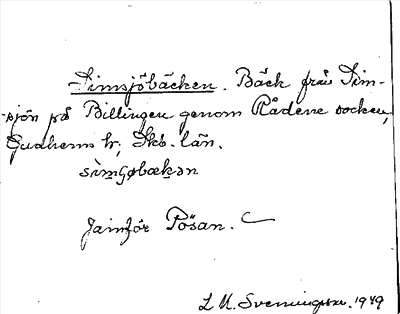 Simsjöbäcken. Bäck från Sim-
sjön på Billingen genom Rådene socken,
Gudhems hr, Skb. län.
sìmʃøbækən
Jämför Pösan.
L M. Svenningsson. 1949